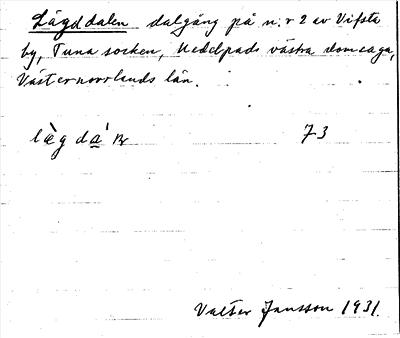 Lägddalen dalgång på n:r 2 av Vifsta
by, Tuna socken, Medelpads västra domsaga,
Västernorrlands län.
lägda`n 73
Valter Jansson 1931.